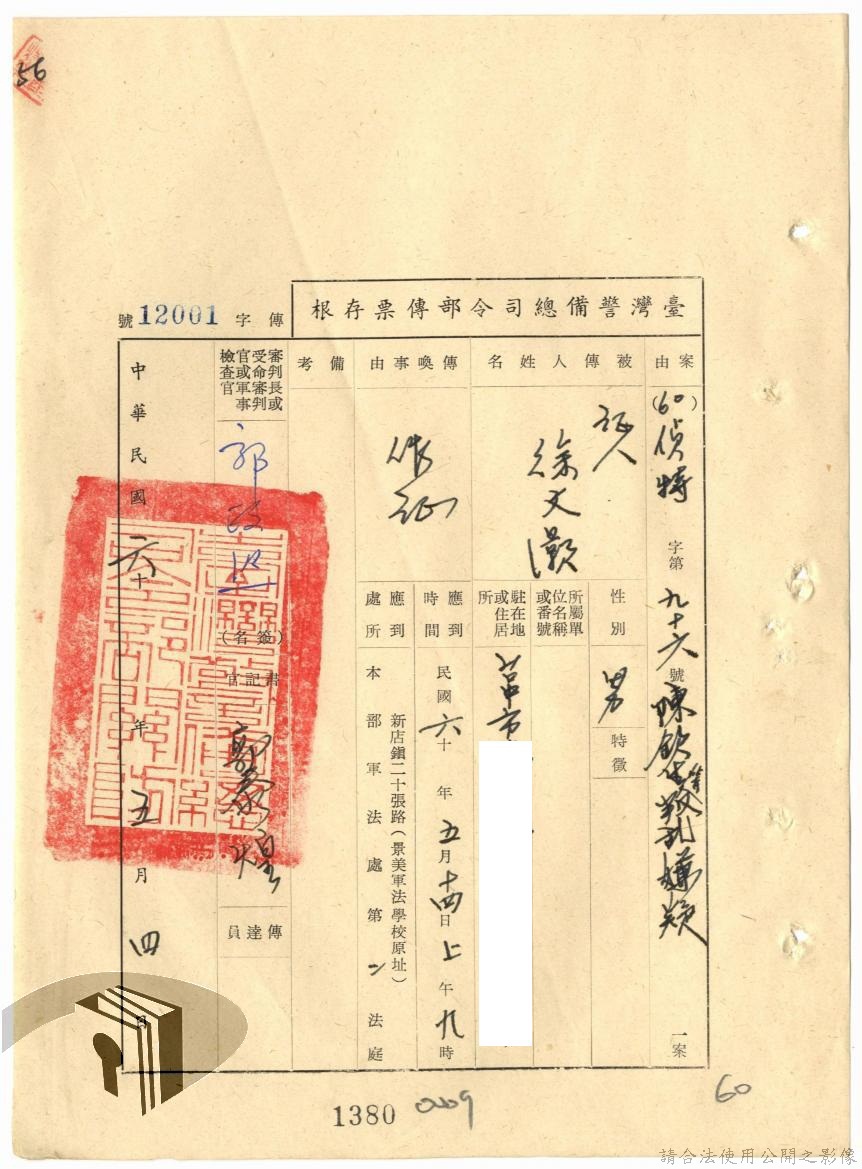 56
臺灣警備總司令部傳票存根
傳字 12001 號
案由
(60)偵特字第九十六號陳欽生等叛亂嫌疑一案
被傳人姓名
証人
徐文灝
性別
男
特徵
所屬單位名稱或番號
駐在地或住居所
台中市
傳喚事由
作証
應到時間
民國六十年五月十四日上午九時
應到處所
新店鎮二十張路(景美軍法學校原址)
本部軍法處第二法庭
備考
審判長或受命審判官或軍事檢查官
郭政熙
(簽名)
書記官
傳達員
中華民國六十年五月四日
1380
60
請合法使用公開之影像